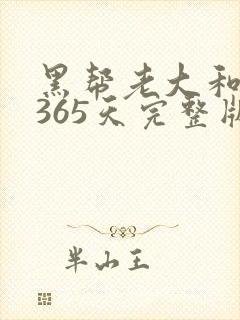 黑帮老大和
365天完整版
半山王